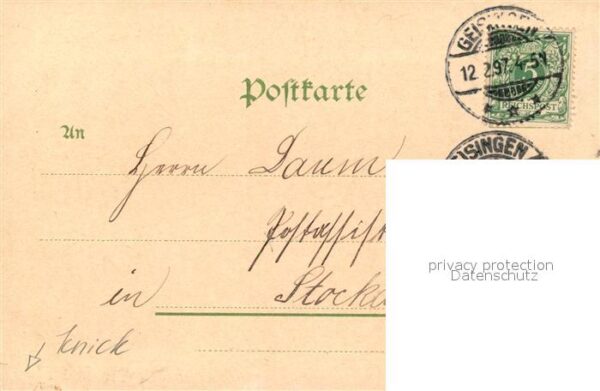 GEISINGEN
12 2.97. 4-5N
5
REICHSPOST
Postkarte
An
GEISINGEN
Herrn Daum
Postassist
privacy protection
Datenschutz
in Stocka
Knick